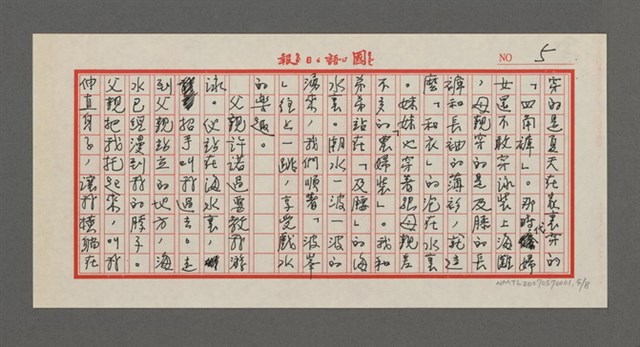 國語日報
NO 5
穿的是夏天在家裏穿的
「四角褲」。那時代婦
女還不敢穿泳裝上海灘
,母親穿的是及膝的長
褲和長袖的薄衫,就這
麼「和衣」的泡在水裏
。妹妹也穿著跟母親差
不多的「農婦裝」。我和
弟弟站在「及腰」的海
水裏。潮水一波一波的
湧來,我們順著「波峯
」往上一跳,享受戲水
的樂趣。
父親許諾過要教我游
泳。他站在海水裏,
招手叫我過去。走
到父親站立的地方,海
水已經漫到我的脖子。
父親把我托起來,叫我
伸直身子,讓我橫躺在
NMTL20070570001, 5/8